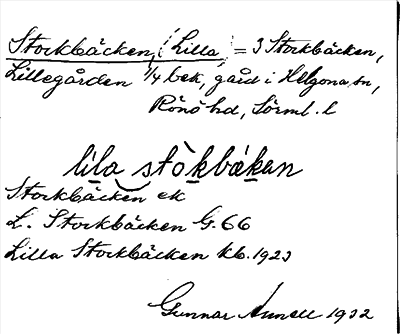 Stockbäcken, Lilla, = 3 Stockbäcken,
Lillegården 1/4 bek, gård i Helgona sn,
Rönö hd, Sörml. l
lila stòkbäken
Stockbäcken ek
L. Stockbäcken G. 66
Lilla Stockbäcken kb. 1923
Gunnar 1932